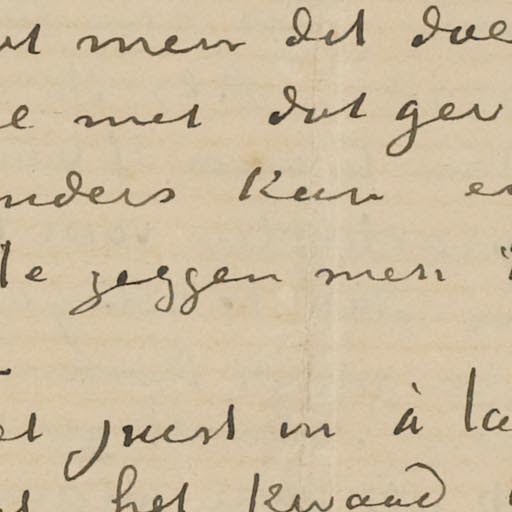 men dat doe
met dat gev
nders kan en
le zeggen men
et juist in à la
het kwaad